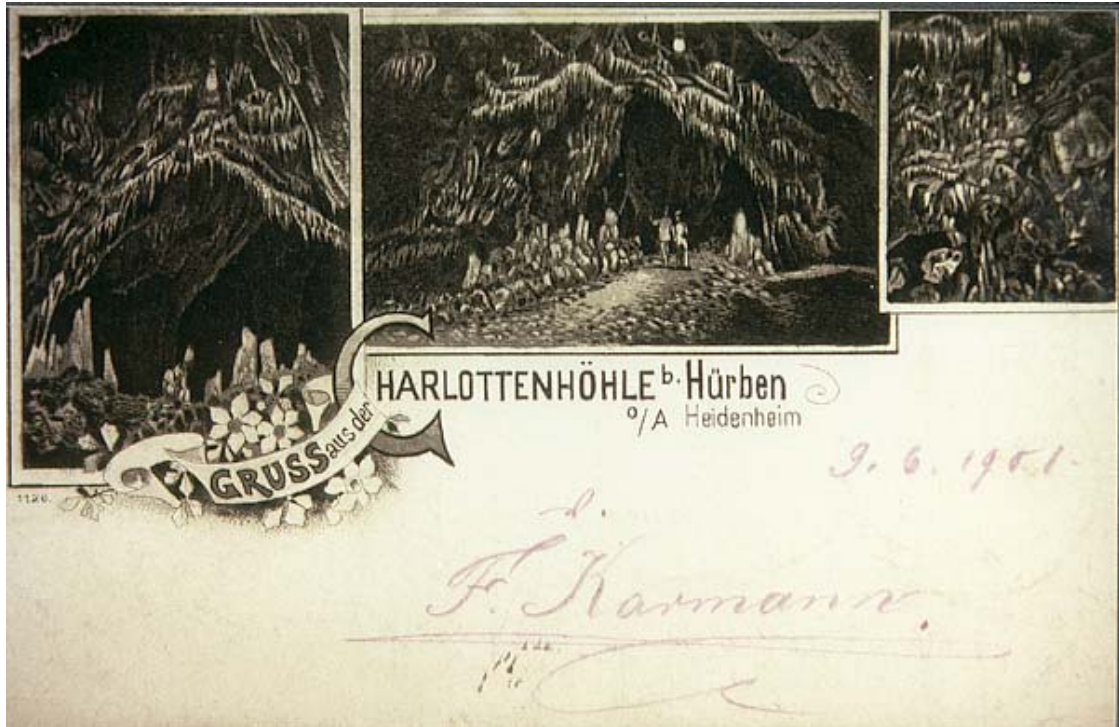 GRUSS aus der
CHARLOTTENHÖHLE b. Hürben
O/A Heidenheim
1126.
9. 6. 1901.
d.
F. Karmann.